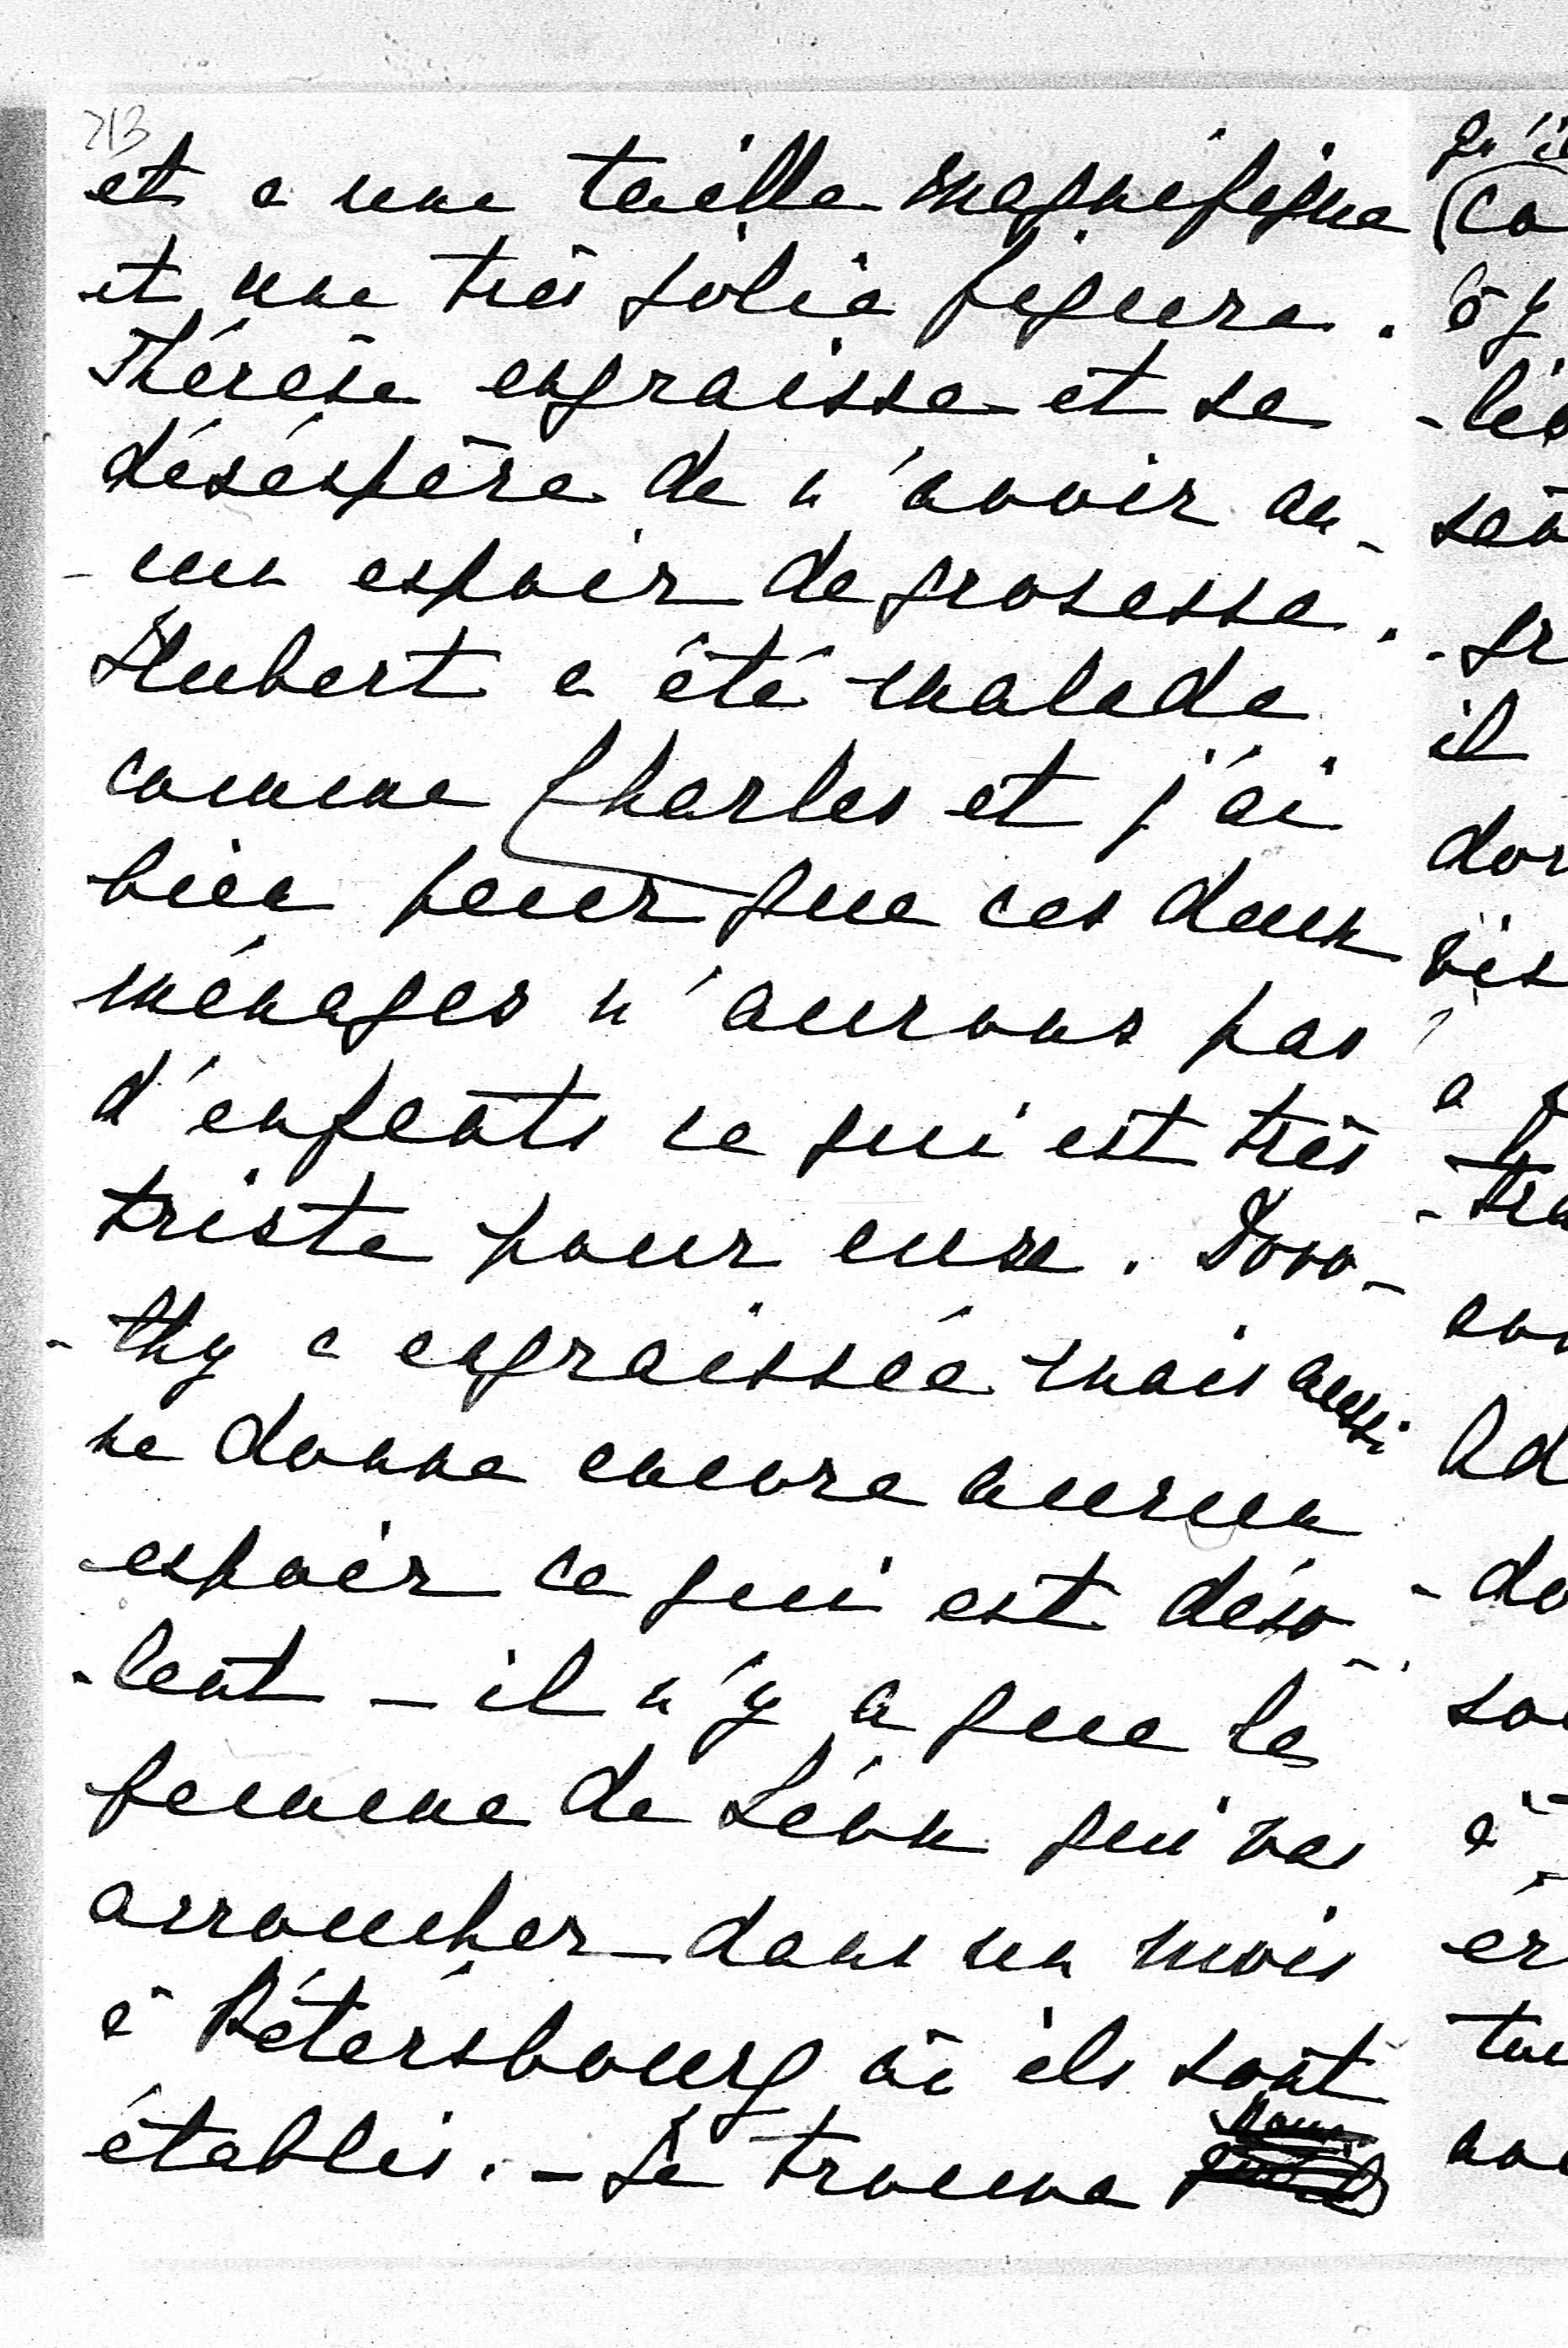 213
et a une taille magnifique
et une très jolie figure.
Thérèse engraisse et se
désespère de n'avoir au-
-cun espoir de grosesse.
Hubert a été malade
comme Charles et j'ai
bien peur que ces deux
ménages n'aurons pas
d'enfants ce qui est très
triste pour eux. Doro-
-thy a engraissée mais aussi
ne donne encore aucun
espoir ce qui est déso
-lant – il n'y a que la
femme de Léon qui vas
accoucher dans un mois
à Pétersbourg où ils sont
établis. – Je trouve